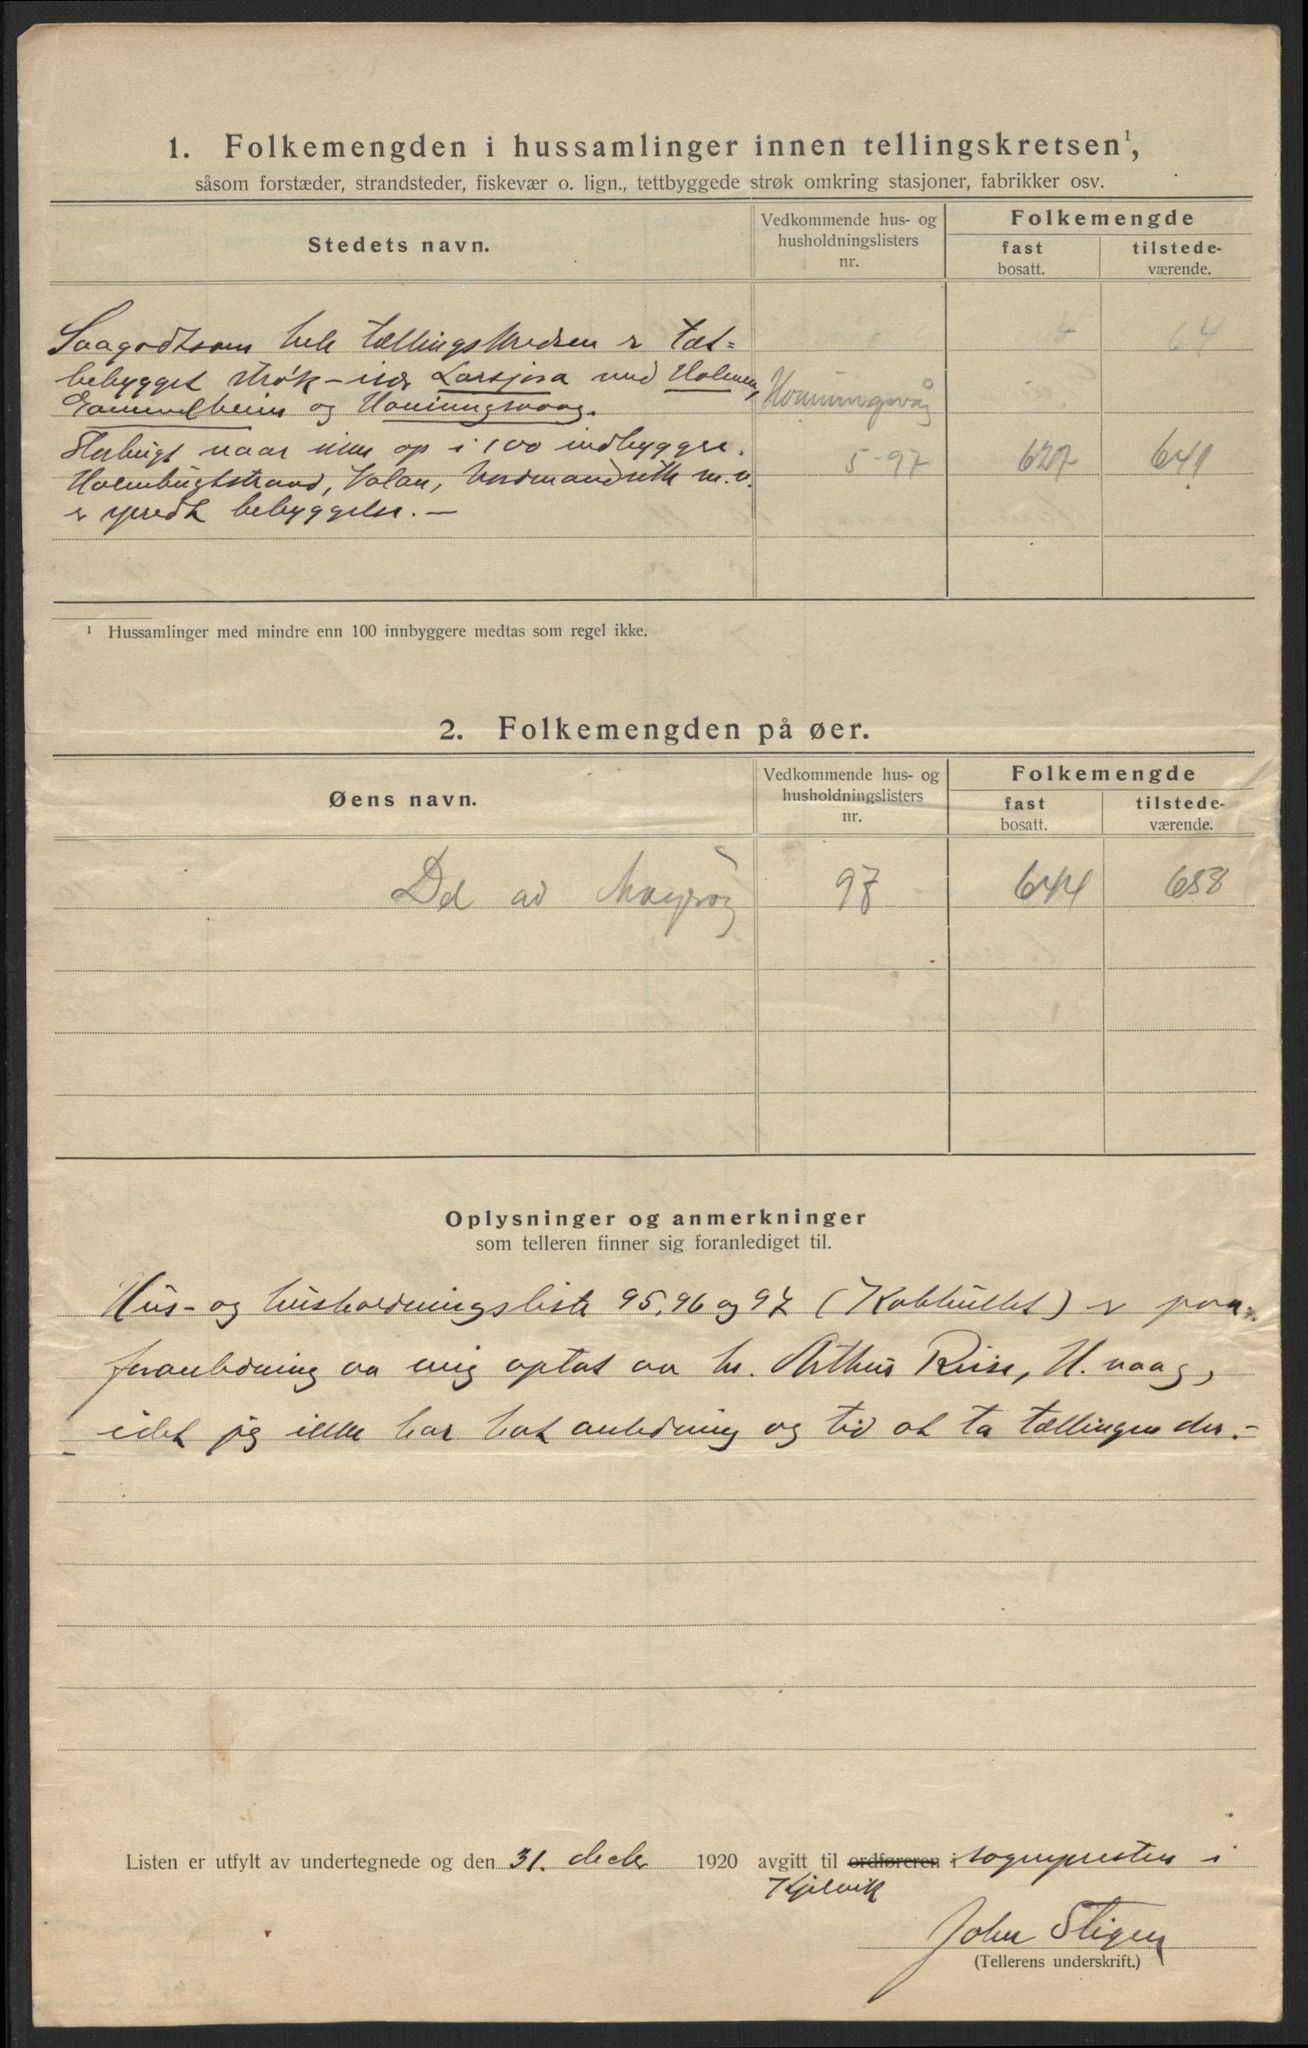 1. Folkemengden i hussamlinger innen tellingskretsen¹,
såsom forstæder, strandsteder, fiskevær o. lign., tettbyggede strøk omkring stasjoner, fabrikker osv.
Stedets navn. Vedkommende hus- og husholdningslisters nr. Folkemengde
fast bosatt. tilstede-værende.
Saagodtsom hele tællingskredsen er tæt= 64
bebygget strøk – især Larsjosa med Holmen,
og Honningsvaag. Honningsvåg
naar ikke op i 100 indbyggere. 5-97 627 641
Holmbugtstrand, Valan, Nordmandset m.v.
er spredt bebyggelse. —
¹ Hussamlinger med mindre enn 100 innbyggere medtas som regel ikke.
2. Folkemengden på øer.
Øens navn. Vedkommende hus- og husholdningslisters nr. Folkemengde
fast bosatt. tilstede-værende.
Del av Magerøy 97 644 658
Oplysninger og anmerkninger
som telleren finner sig foranlediget til.
Hus- og husholdningsliste 95, 96 og 97 (Kobhullet) er paa
foranledning av mig optat av hr. Arthur Riise, H. vaag,
idet jeg ikke har hat anledning og tid at ta tællingen der. –
Listen er utfylt av undertegnede og den 31. decbr 1920 avgitt til ordføreren i sognepresten i
Kjelvik
John Stigen
(Tellerens underskrift.)